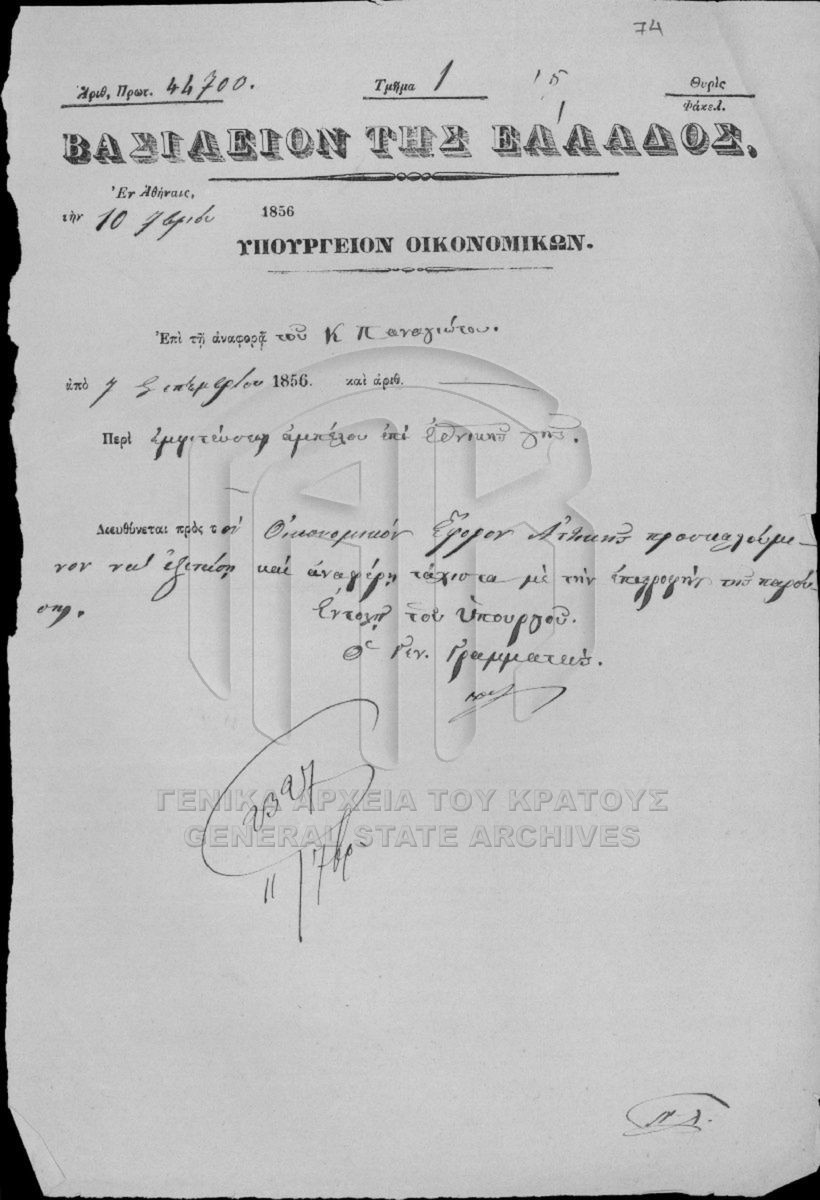 74
Ἀριθ, Πρωτ. 44700. Τμῆμα 1 15 Θυρὶς
1 Φάκελ.
ΒΑΣΙΛΕΙΟΝ ΤΗΣ ΕΛΛΑΔΟΣ,
Ἐν Ἀθήναις,
τὴν 10 7βρίου 1856
ΥΠΟΥΡΓΕΙΟΝ ΟΙΚΟΝΟΜΙΚΩΝ.
Ἐπὶ τῇ ἀναφορᾷ τοῦ Κ Παναγιώτου.
ἀπὸ 7 Σεπτεμβρίου 1856. καὶ ἀριθ.
Περὶ ἐμφυτεύσεως ἀμπέλου ἐπὶ ἐθνικῆς γῆς.
Διευθύνεται πρὸς τὸν Οἰκονομικὸν Ἔφορον Ἀττικῆς προσκαλούμε-
νον νὰ ἐξετάσῃ καὶ ἀναφέρῃ τάχιστα μὲ τὴν ἐπιστροφὴν τῆς παρού-
σης. Ἐντολῇ τοῦ Ὑπουργοῦ.
Ὁ Γεν. Γραμματεὺς.
2327
11 7βρ.
ΓΕΝΙΚΑ ΑΡΧΕΙΑ ΤΟΥ ΚΡΑΤΟΥΣ
GENERAL STATE ARCHIVES